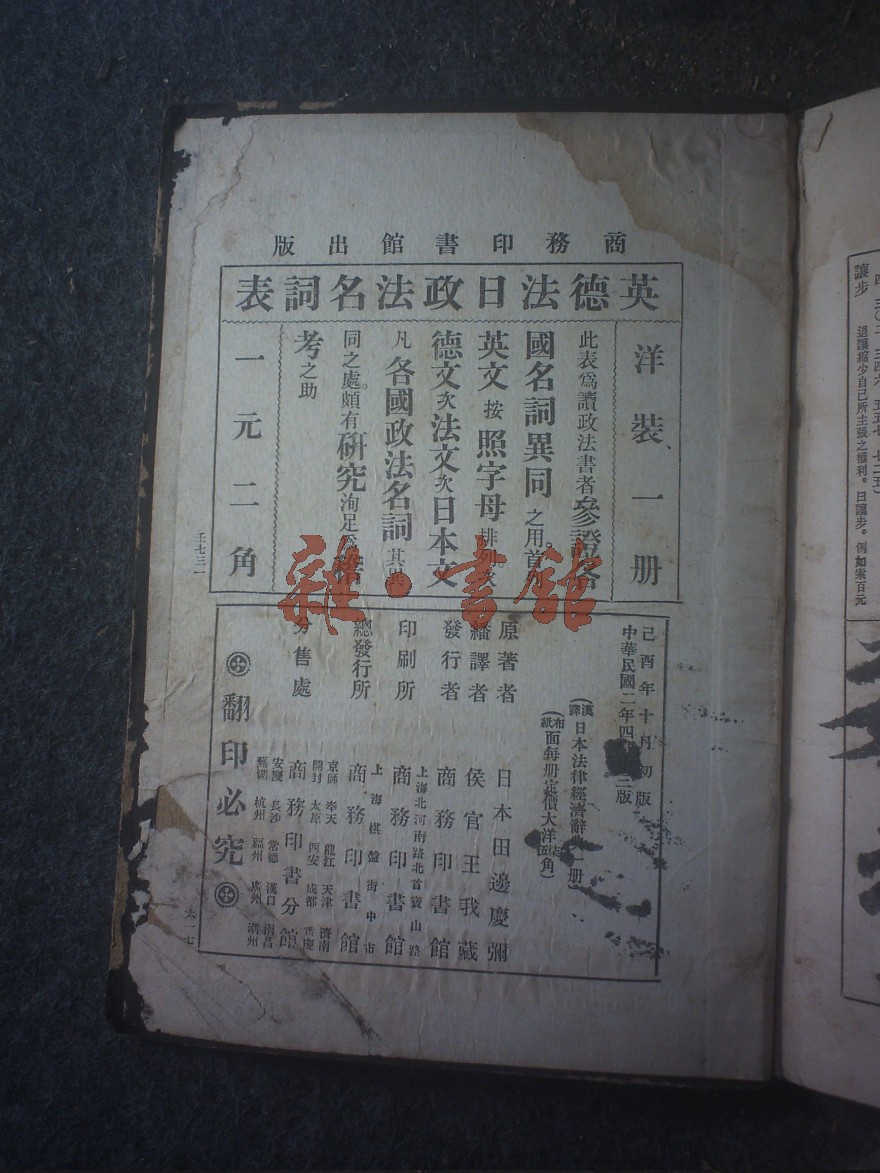 商務印書館出版
英德法日政法名詞表
洋裝一册
此表爲讀政法書者參證各
國名詞異同之用首列
英文按照字母排列次
德文次法文次日本文
凡各國政法名詞其異
同之處頗有研究洵足爲稽
考之助
一元二角
壬七三一
己酉年十月初版
中華民國二年四月三版
(漢譯日本法律經濟辭典一册)
(布紙面每册定價大洋伍角)
原著者 日本田邊慶彌
繙譯者 侯官王我臧
發行者 商務印書館
上海北河南路北首寶山路
印刷所 商務印書館
上海棋盤街中市
總發行所 商務印書館
京師 奉天 龍江 天津 濟南
開封 太原 西安 成都 重慶
分售處 商務印書分館
安慶 長沙 常德 漢口 南昌
蕪湖 杭州 福州 廣州 潮州
翻印必究
六一七
雜·書館
四 三〇二 三四六 五五七 七二五)
讓步 退讓縮少自己所主張之權利。曰讓步。例如索百元